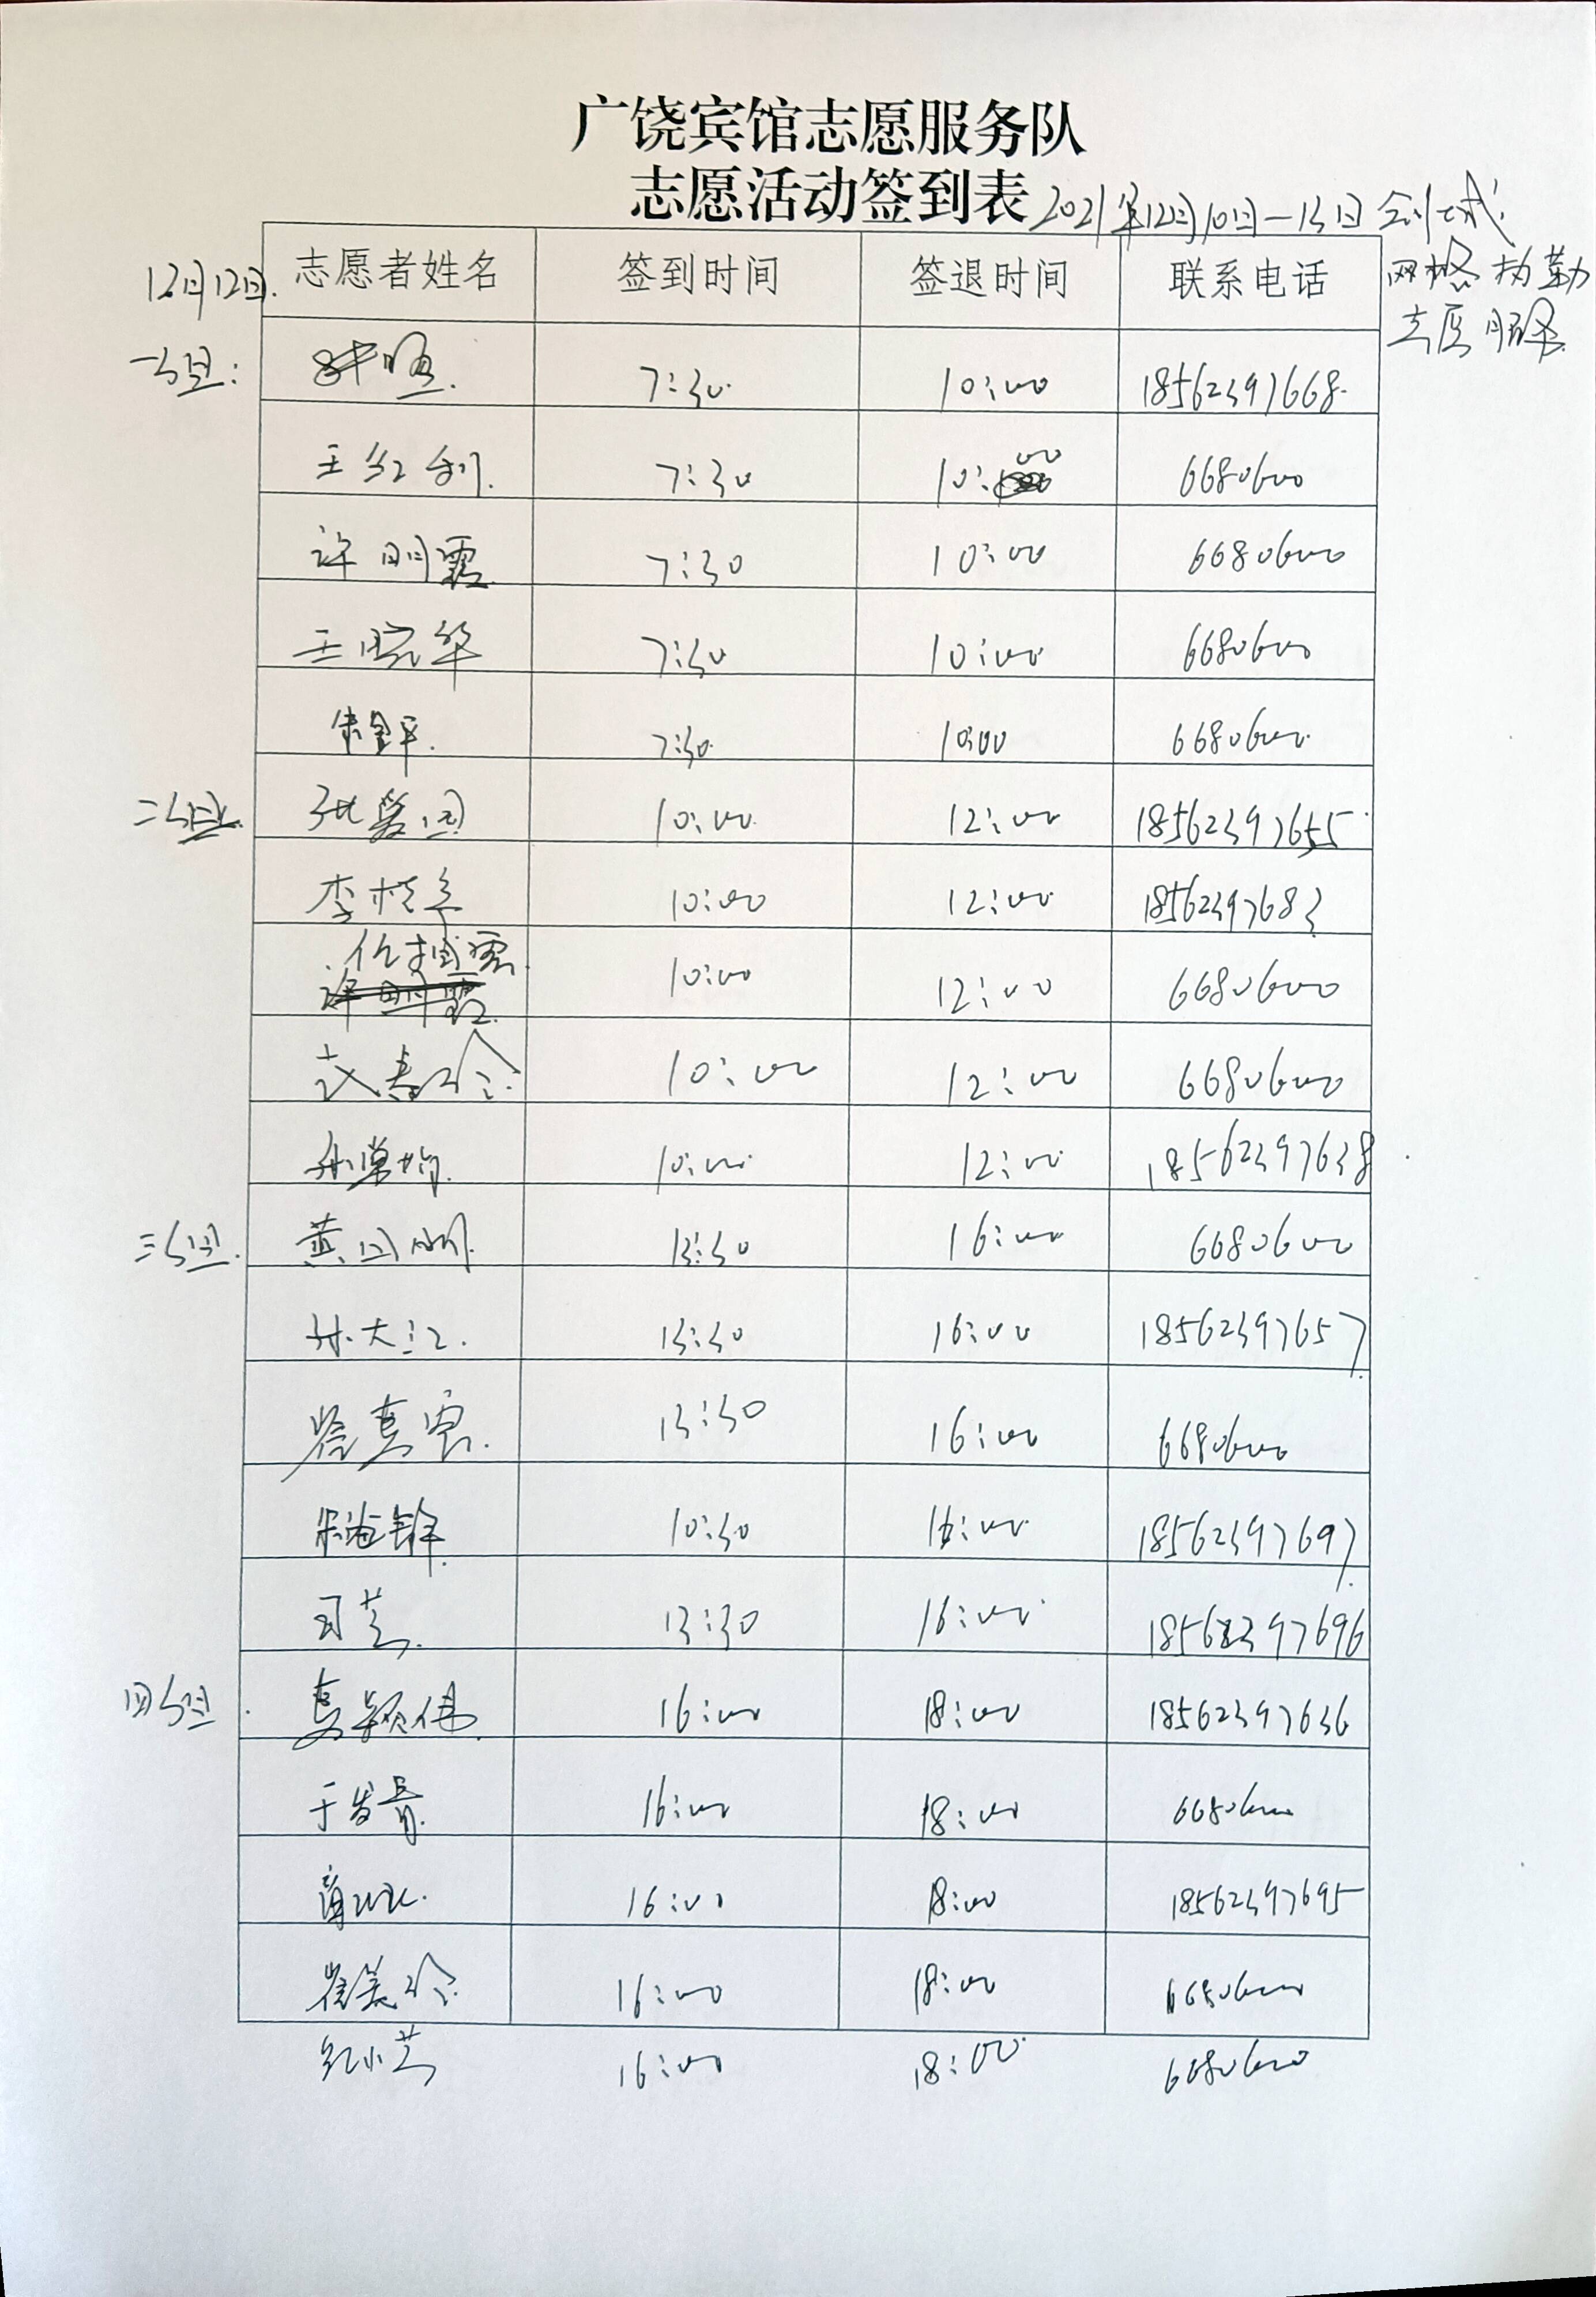 广饶宾馆志愿服务队
志愿活动签到表 2021年12月10日-13日 创城
网格执勤
志愿服务
12月12日. 志愿者姓名 签到时间 签退时间 联系电话
一组: 7:30 10:00 18562397668
王红利. 7:30 10:00 6680600
许明霞 7:30 10:00 6680600
王晓华 7:30 10:00 6680600
宋金平. 7:30 10:00 6680600
二组. 10:00 12:00 18562397655
李桂 10:00 12:00 18562397683
10:00 12:00 6680600
武春玲. 10:00 12:00 6680600
10:00 12:00 18562397638
三组. 黄明. 13:30 16:00 6680600
孙大江. 13:30 16:00 18562397657
13:30 16:00 6680600
10:30 16:00 18562397697
司芸. 13:30 16:00 18562397696
四组. 袁颖伟. 16:00 18:00 18562397636
于 16:00 18:00 6680600
16:00 18:00 18562397695
崔美玲. 16:00 18:00 6680600
纪小芸 16:00 18:00 6680600